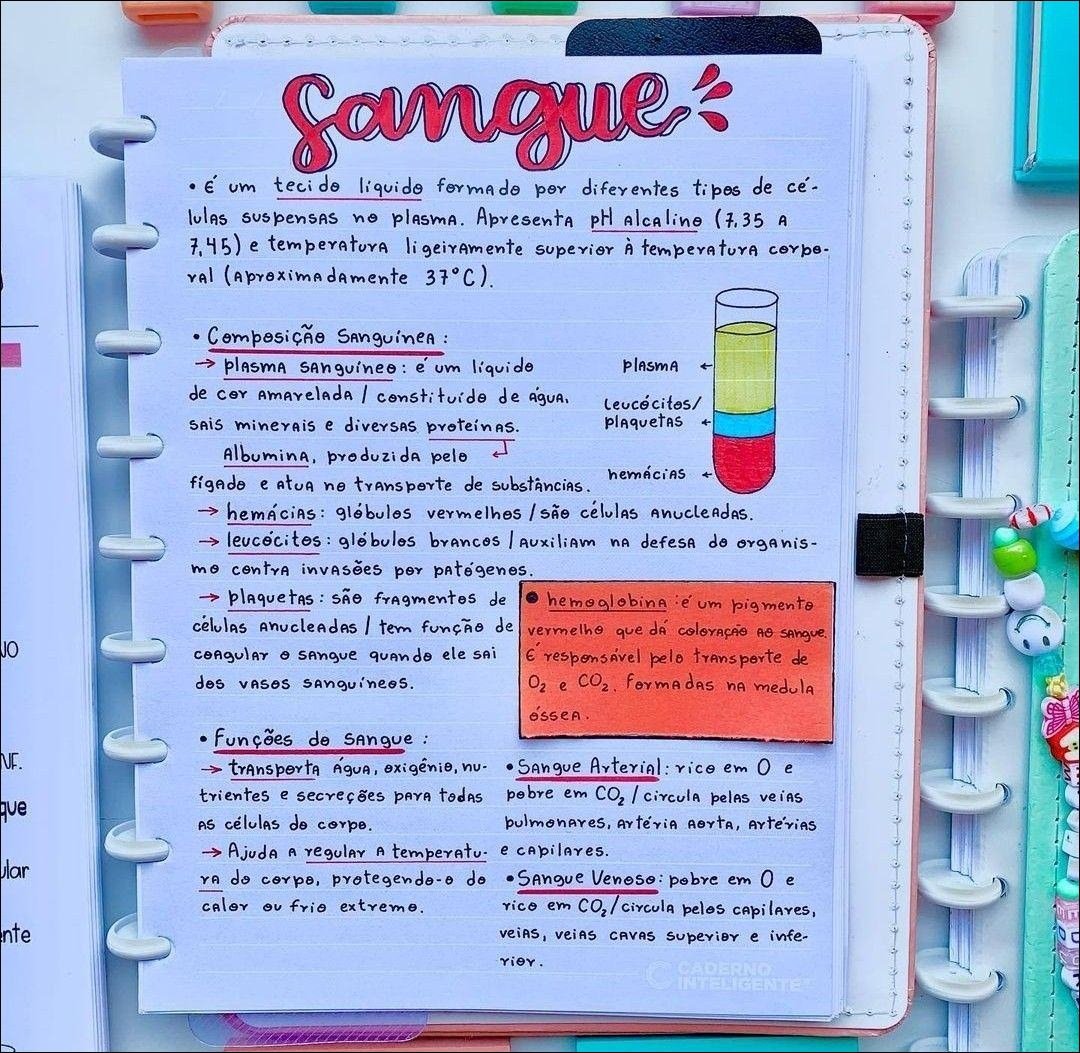 Sangue
• É um tecido líquido formado por diferentes tipos de cé-
lulas suspensas no plasma. Apresenta pH alcalino (7,35 a
7,45) e temperatura ligeiramente superior à temperatura corpo-
ral (aproximadamente 37°C).
• Composição Sanguínea:
→ plasma sanguíneo: é um líquido
de cor amarelada / constituído de água,
sais minerais e diversas proteínas.
Albumina, produzida pelo
fígado e atua no transporte de substâncias.
plasma ←
leucócitos/
plaquetas ←
hemácias ←
→ hemácias: glóbulos vermelhos / são células anucleadas.
→ leucócitos: glóbulos brancos / auxiliam na defesa do organis-
mo contra invasões por patógenos.
→ plaquetas: são fragmentos de
células anucleadas / tem função de
coagular o sangue quando ele sai
dos vasos sanguíneos.
• hemoglobina: é um pigmento
vermelho que dá coloração ao sangue.
É responsável pelo transporte de
O₂ e CO₂. Formadas na medula
óssea.
• Funções do sangue:
→ transporta água, oxigênio, nu-
trientes e secreções para todas
as células do corpo.
→ Ajuda a regular a temperatu-
ra do corpo, protegendo-o do
calor ou frio extremo.
• Sangue Arterial: rico em O e
pobre em CO₂ / circula pelas veias
pulmonares, artéria aorta, artérias
e capilares.
• Sangue Venoso: pobre em O e
rico em CO₂ / circula pelos capilares,
veias, veias cavas superior e infe-
rior.
CADERNO
INTELIGENTE
NF.
que
ular
ente